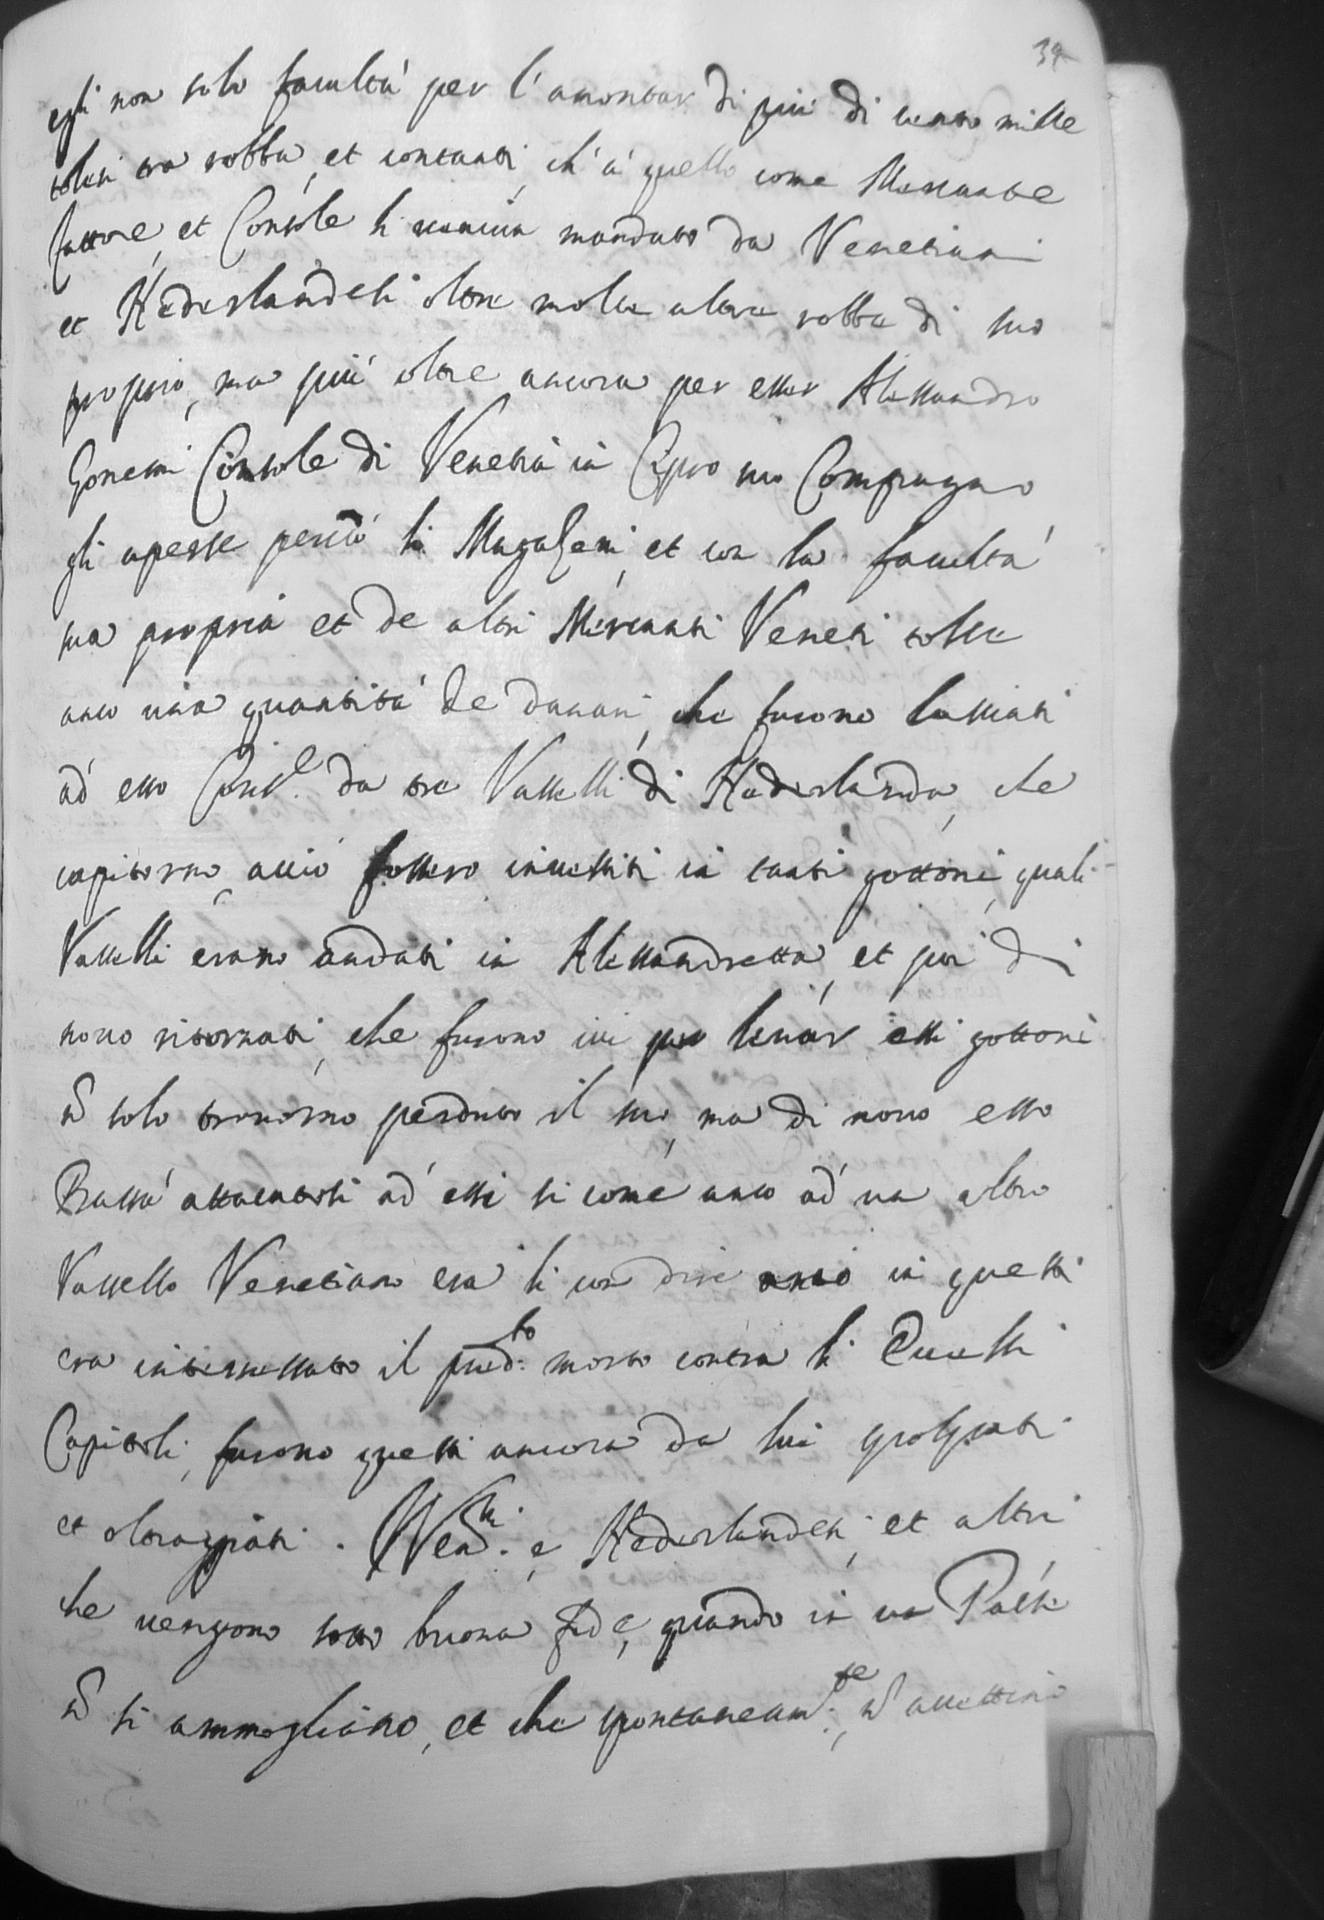 34
egli non solo facultà per l'amontar di più di cento mille
toleri tra robba, et contanti, ch'a quello come Mercante
fattore, et Console li veniva mandato da Venetiani
et Hederlandesi oltre molta altra robba di suo
proprio, ma più oltre ancora per esser Alessandro
Gonemi Console di Venetia in Cipro suo Compagno
gli aperse perciò li Magaseni, et con la facultà
sua propria et de altri Mercanti Veneti tolse
anco una quantità de danari, che furono lassiati
ad esso Cons.e da tre Vasselli di Hederlanda, che
capitorno, acciò fossero investiti in tanti gottoni, quali
Vasselli erano andati in Alessandretta, et poi di
novo ritornati, che furono ivi per levar essi gottoni
nō solo trovorno perduto il suo, ma di novo esso
Bassà attacatosi ad essi si come anco ad un altro
Vassello Venetiano era li con dire anco in questi
era interessato il pred.to morto contra li Eccelsi
Capitoli, furono questi ancora da lui spogliati
et oltraggiati. Ven.ti e Hederlandesi, et altri
che vengono sotto buona fede, quando in un Paese
nō si ammogliano, et che spontaneam.te nō accettino